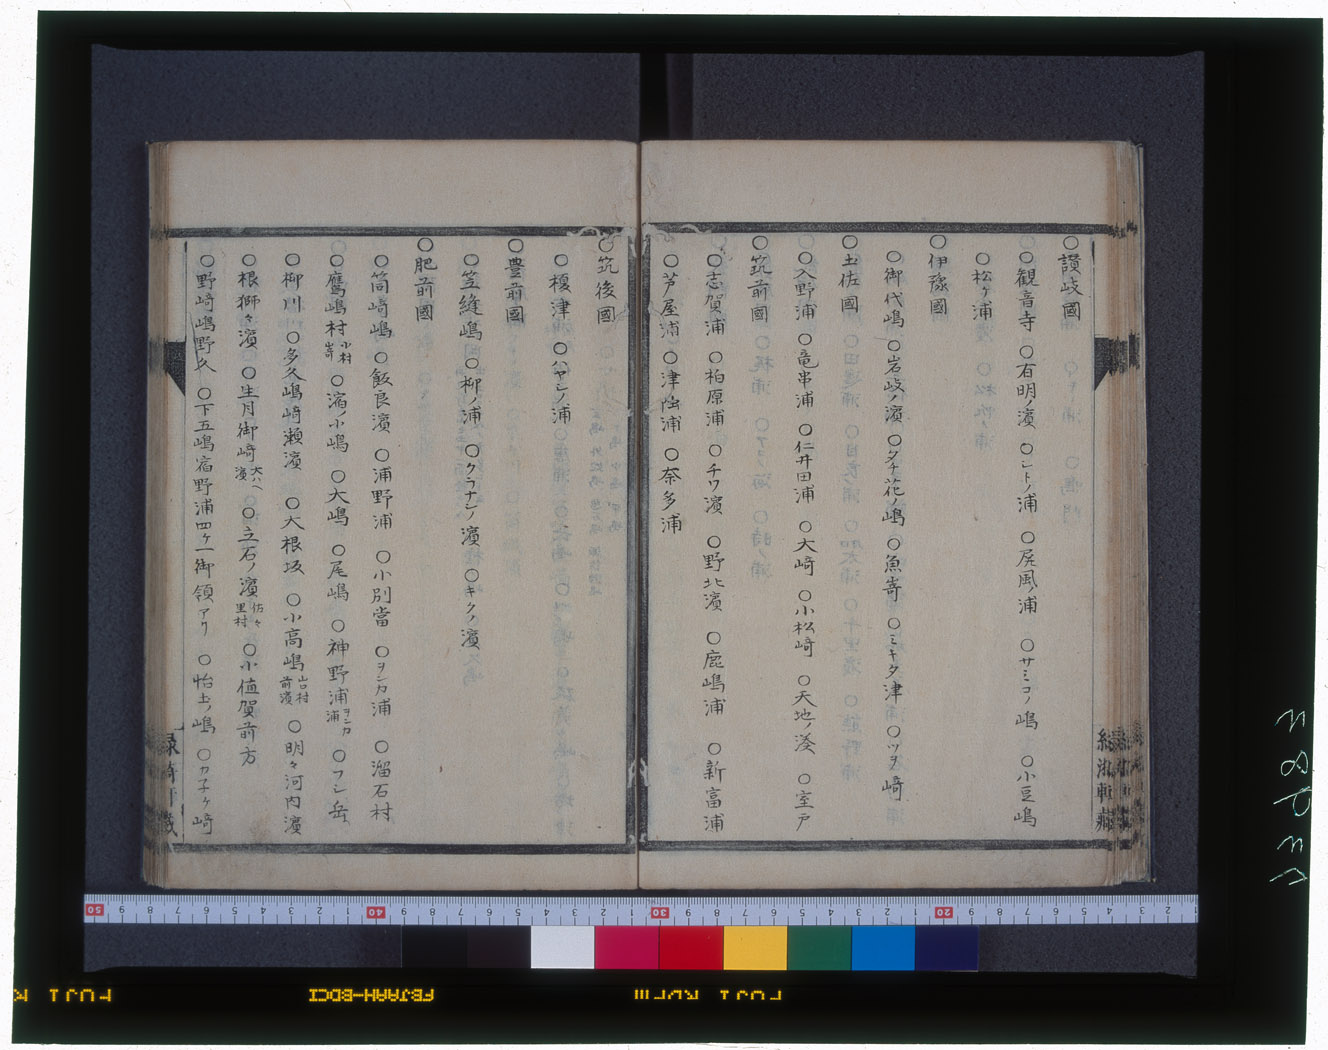 ○讃岐國
○観音寺 ○有明ノ濱 ○シトノ浦 ○屏風ノ浦 ○サミコノ嶋 ○小豆嶋
○松ヶ浦
○伊豫國
○御代嶋 ○岩岐ノ濱 ○タチ花ノ嶋 ○魚嵜 ○ミキタ津 ○ツヲ﨑
○土佐國
○入野浦 ○竜串浦 ○仁井田浦 ○大﨑 ○小松﨑 ○天地ノ湊 ○室戸
○筑前國
○志賀浦 ○柏原浦 ○チワ濱 ○野北濱 ○鹿嶋浦 ○新富浦
○芦屋浦 ○津陸浦 ○奈多浦
○筑後國
○榎津 ○ハヤシノ浦
○豊前國
○笠縫嶋 ○柳ノ浦 ○クラナシノ濱 ○キクノ濱
○肥前國
○筒﨑嶋 ○飯良濱 ○浦野浦 ○小別當 ○ヲシカ浦 ○溜石村
○鷹嶋村 小村 ○濱ノ小嶋 ○大嶋 ○尾嶋 ○神野浦 ヲシカ浦 ○フシ岳
○柳川 ○多久嶋﨑瀬濱 ○大根坂 ○小高嶋 山口村前濱 ○明々河内濱
○根獅々濱 ○生月御﨑 大ハへ濱 ○立石ノ濱 佐々里村 ○小値賀前方
○野﨑嶋野久 ○下五嶋宿野浦四ヶ一御領アリ ○怡土ノ嶋 ○カ子ヶ﨑
FUJI
FBJAAH-EDCI
FUJI